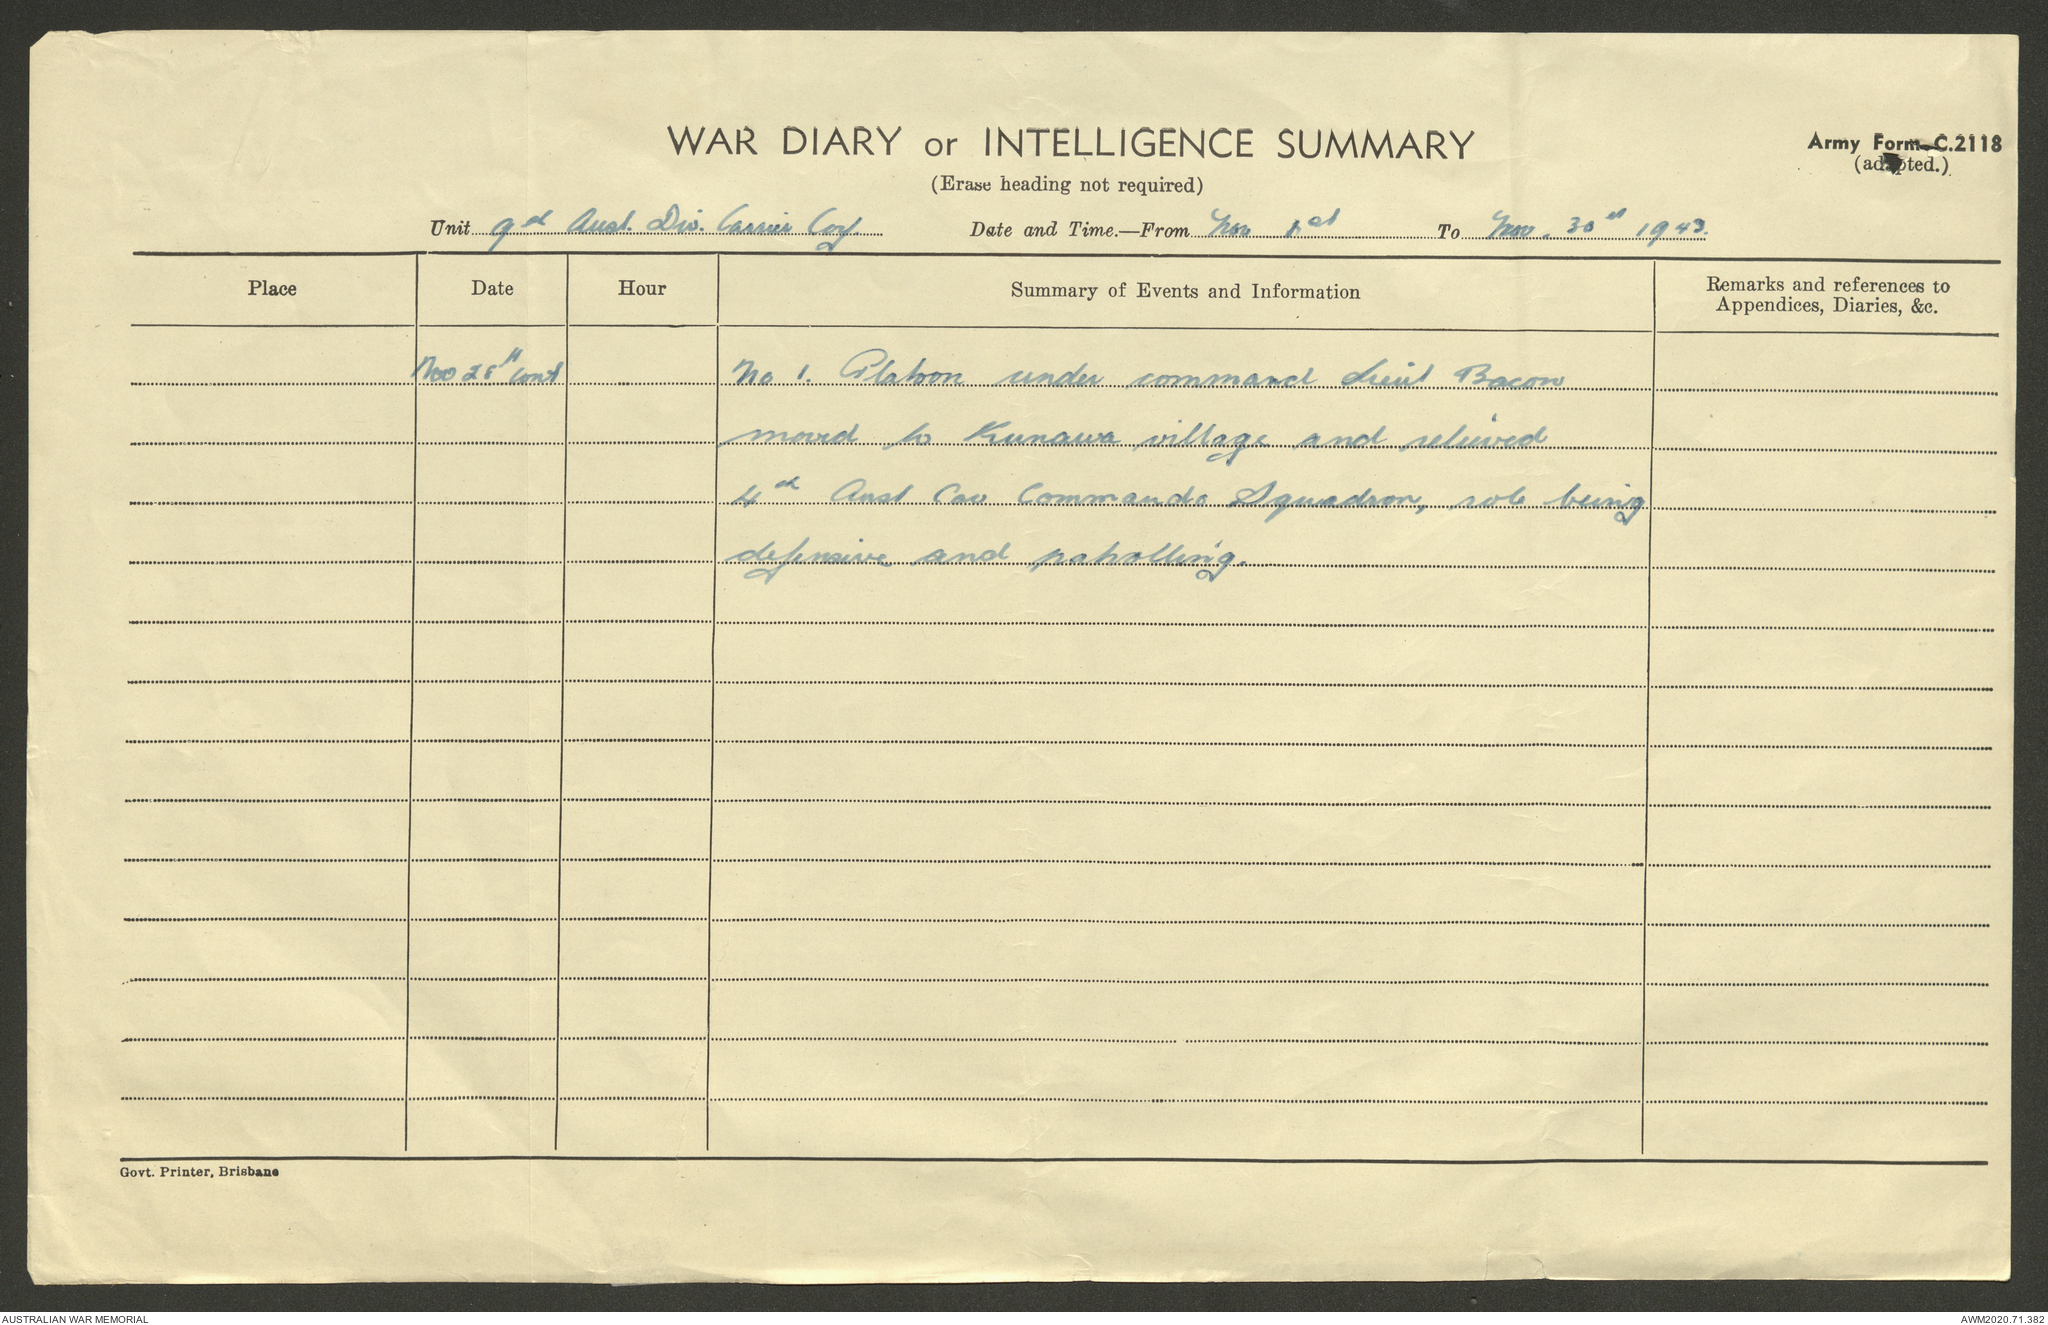 WAR DIARY or INTELLIGENCE SUMMARY
Army Form C.2118
(adapted.)
(Erase heading not required)
Unit 9th Aust. Div. Carrier Coy. Date and Time.—From Nov 1st To Nov. 30th 1943.
Place Date Hour Summary of Events and Information Remarks and references to
Appendices, Diaries, &c.
Nov 28th cont No 1. Platoon under command Lieut Bacon
moved to Kunawa village and relieved
4th Aust Cav Commando Squadron, role being
defensive and patrolling.
Govt. Printer, Brisbane
AUSTRALIAN WAR MEMORIAL AWM2020.71.382